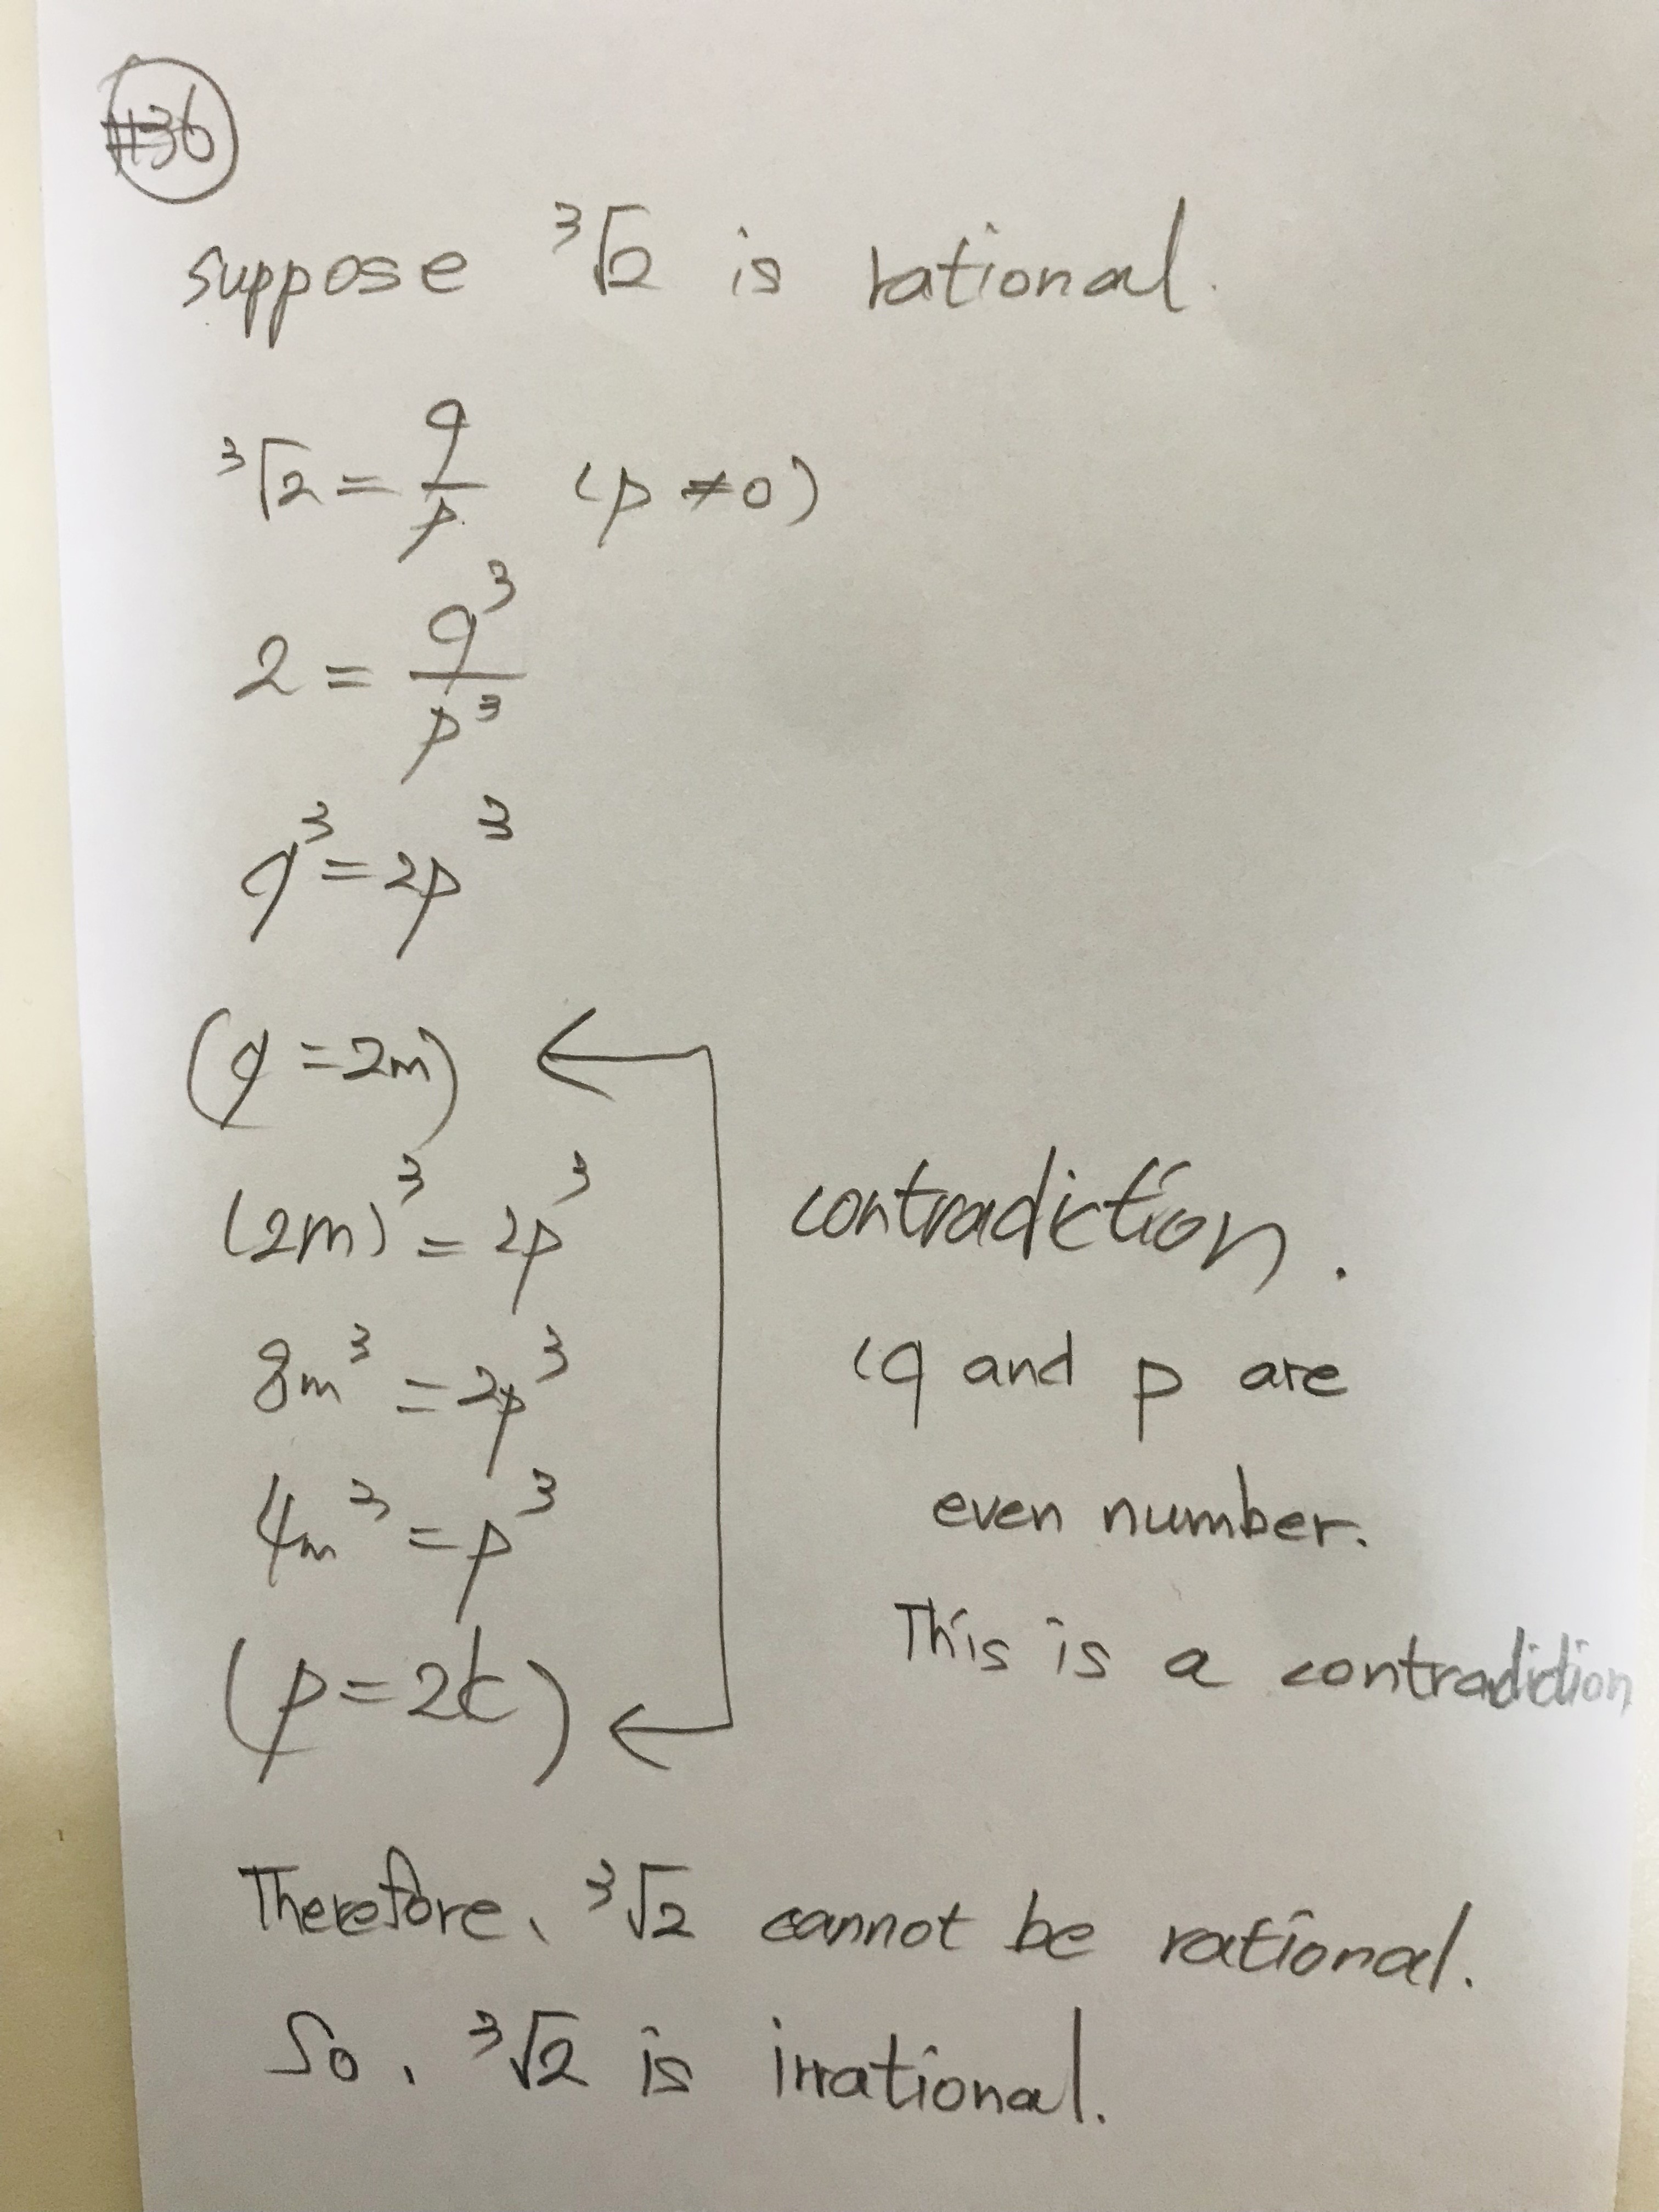 #36
suppose ³√2 is rational.
³√2 = q/p (p ≠ 0)
2 = q³/p³
q³ = 2p³
(q = 2m)
(2m)³ = 2p³
8m³ = 2p³
4m³ = p³
(p = 2k)
contradiction.
(q and p are
even number.
This is a contradiction
Therefore, ³√2 cannot be rational.
So, ³√2 is irrational.